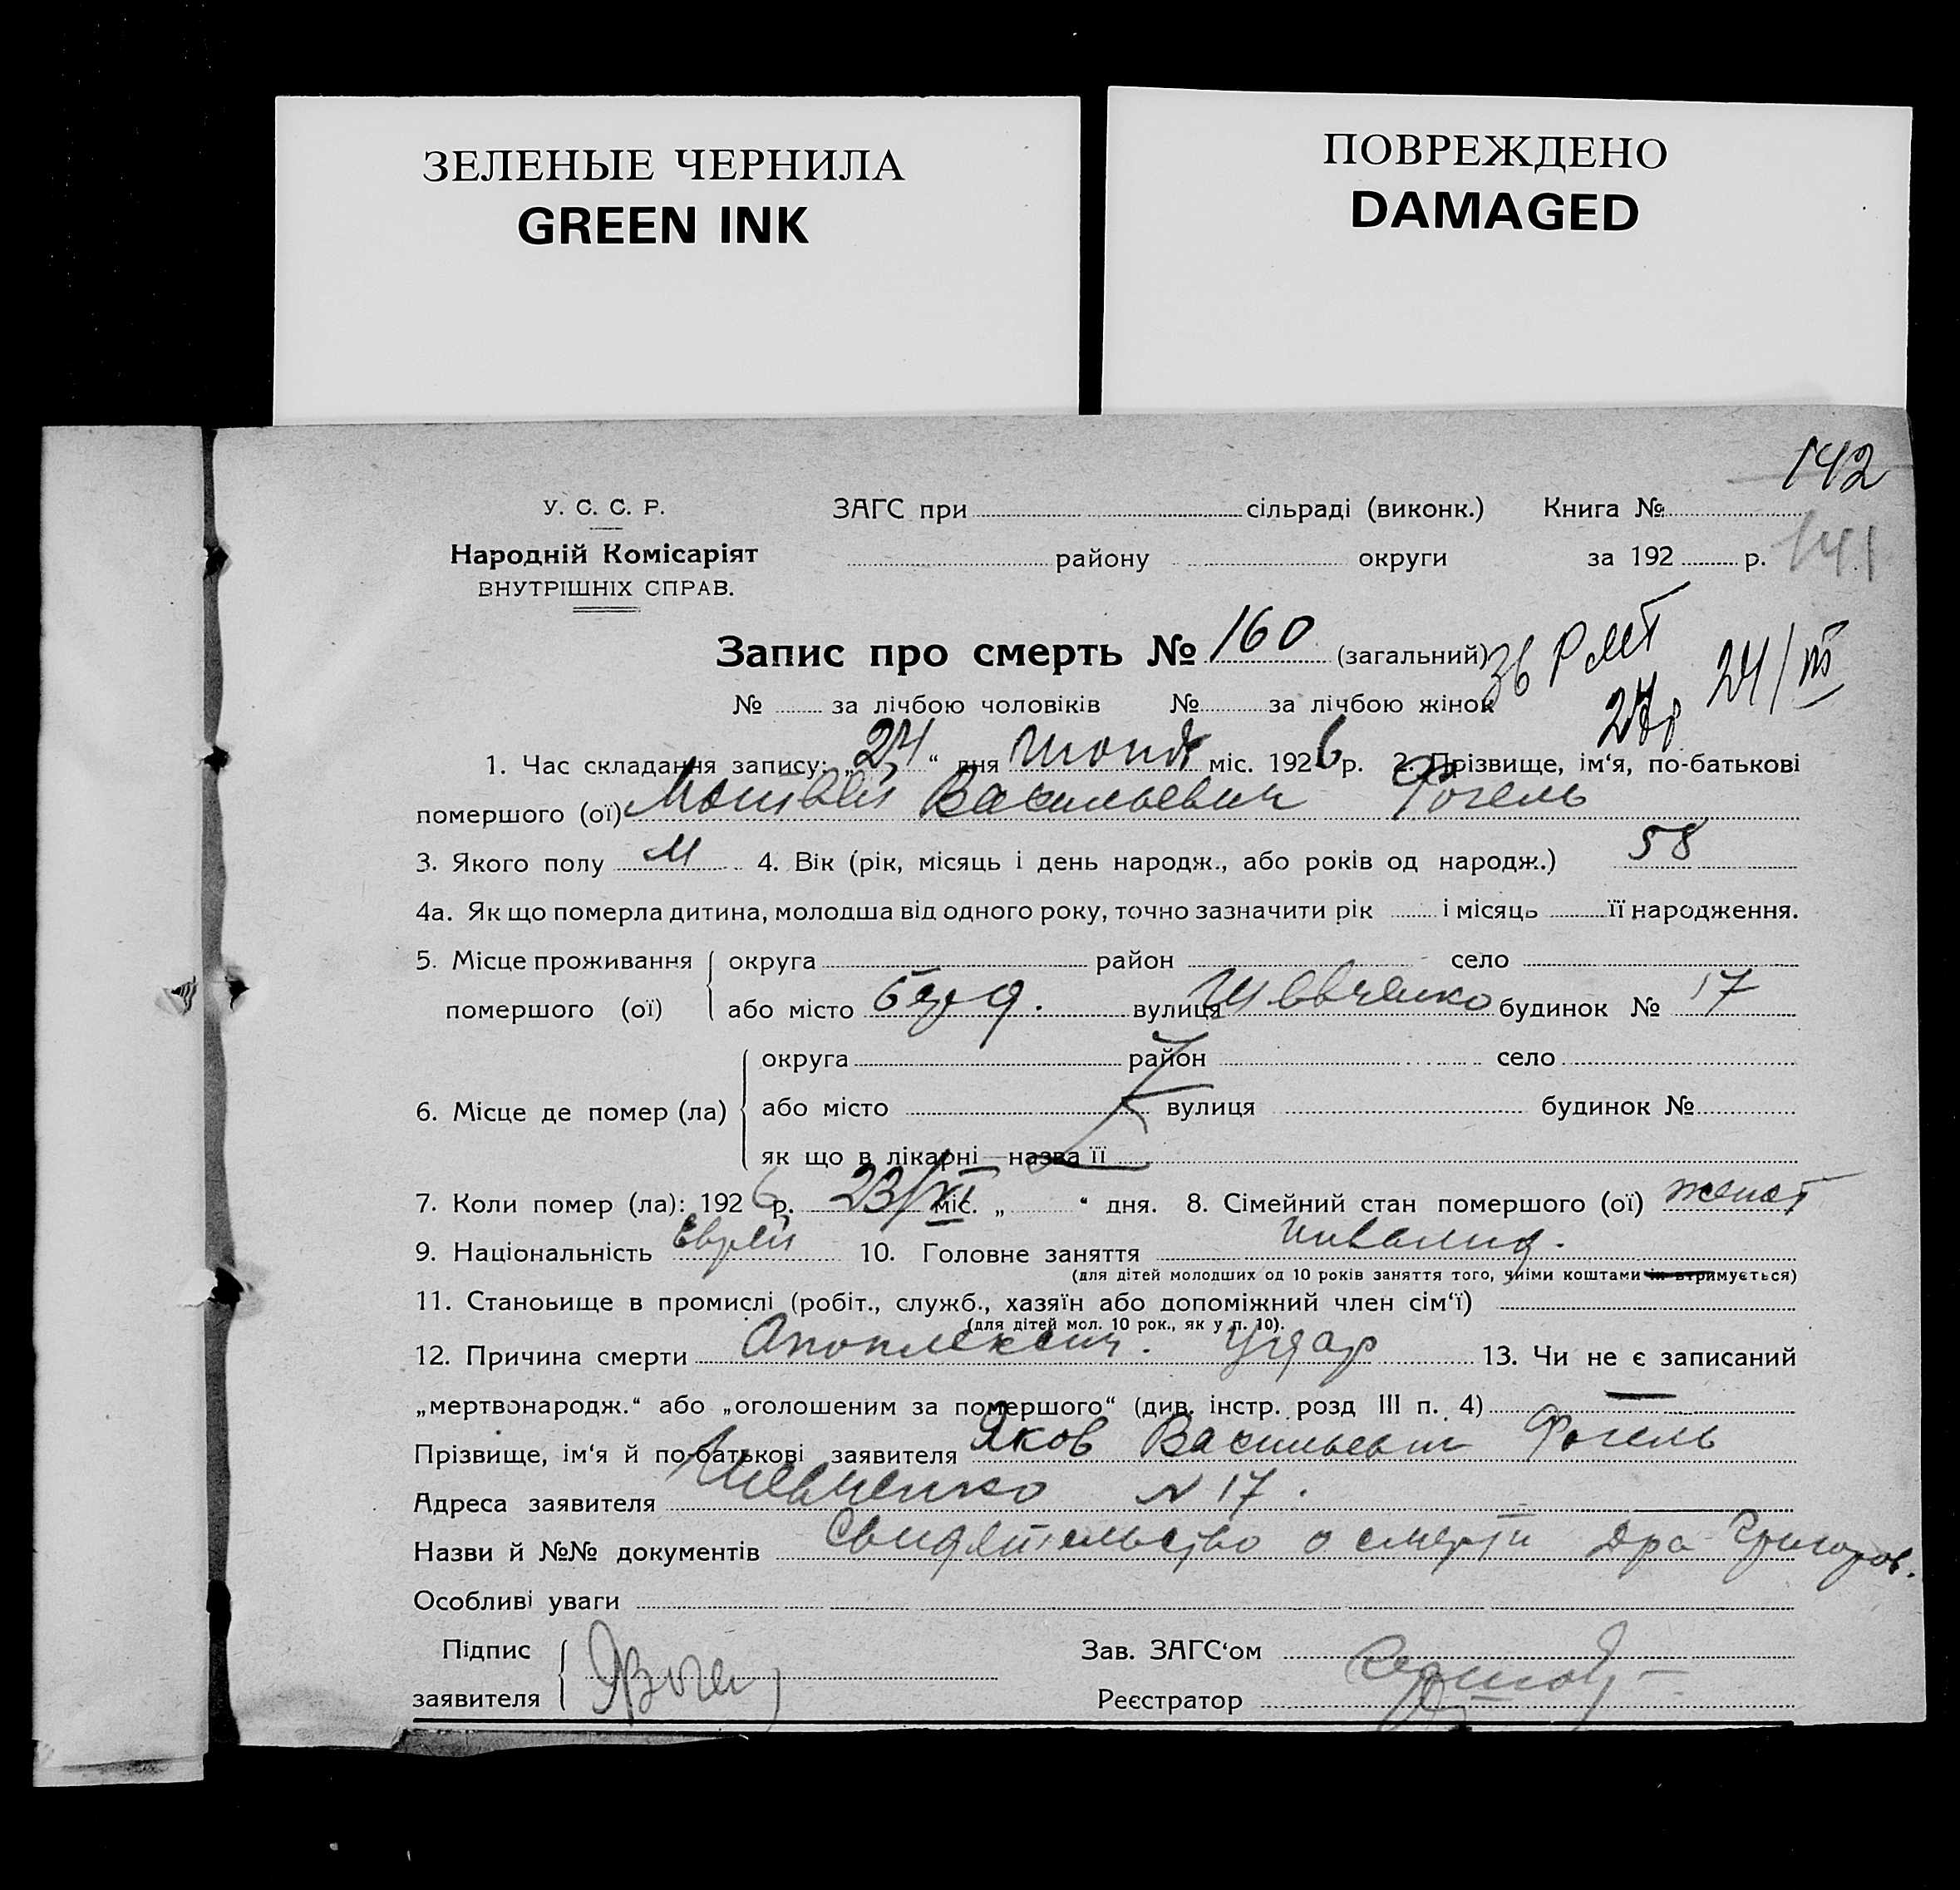 ЗЕЛЕНЫЕ ЧЕРНИЛА
GREEN INK
ПОВРЕЖДЕНО
DAMAGED
142
У. С. С. Р.
ЗАГС при сільраді (виконк.) Книга №
Народній Комісаріят
району округи за 192 р. 141
ВНУТРІШНІХ СПРАВ.
Запис про смерть № 160 (загальний)
24/III
№ за лічбою чоловіків № за лічбою жінок
1. Час складання запису: „24“ дня міс. 1926 р. 2. Прізвище, ім‘я, по-батькові
помершого (ої) Васильевич Фогель
3. Якого полу М 4. Вік (рік, місяць і день народж., або років од народж.) 58
4а. Як що померла дитина, молодша від одного року, точно зазначити рік і місяць її народження.
5. Місце проживання округа район село
помершого (ої) або місто вулиця Шевченко будинок № 17
округа район село
6. Місце де помер (ла) або місто вулиця будинок №
як що в лікарні—назва її
7. Коли помер (ла): 1926 р. 23/ міс. „ “ дня. 8. Сімейний стан помершого (ої) женат
9. Національність еврей 10. Головне заняття инвалид.
(для дітей молодших од 10 років заняття того, чиїми коштами їх втримується)
11. Становище в промислі (робіт., служб., хазяїн або допоміжний член сім‘ї)
(для дітей мол. 10 рок., як у п. 10).
12. Причина смерти Апоплексич. удар 13. Чи не є записаний
„мертвонародж.“ або „оголошеним за помершого“ (див. інстр. розд III п. 4) —
Прізвище, ім‘я й по-батькові заявителя Яков Васильевич Фогель
Адреса заявителя Шевченко № 17.
Назви й №№ документів Свидетельство о смерти Д-ра Григоров.
Особливі уваги
Підпис Зав. ЗАГС‘ом
заявителя Реєстратор